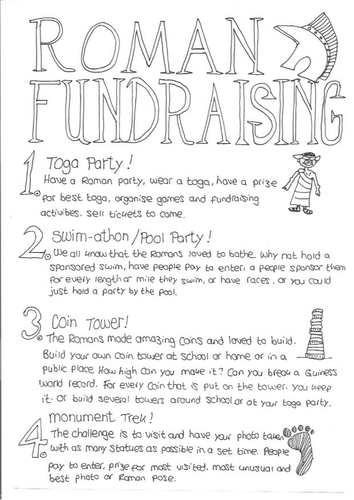 ROMAN
FUNDRAISING
1. Toga Party!
Have a Roman party, wear a toga, have a prize
for best toga, organise games and fundraising
activities. sell tickets to come.
2. Swim-athon/Pool Party!
We all know that the Romans loved to bathe. Why not hold a
sponsored swim, have people pay to enter, a people sponsor them
for every length or mile they swim, or have races. or you could
just hold a party by the pool.
3. Coin Tower!
The Romans made amazing coins and loved to build.
Build your own coin tower at school or home or in a
public place. How high can you make it? Can you break a Guiness
world record. For every coin that is put on the tower, you keep
it. or build several towers around school or at your toga party.
4. monument Trek!
The challenge is to visit and have your photo taken
with as many Statues as possible in a set time. People
pay to enter, prize for most visited, most unusual and
best photo or Roman Pose.